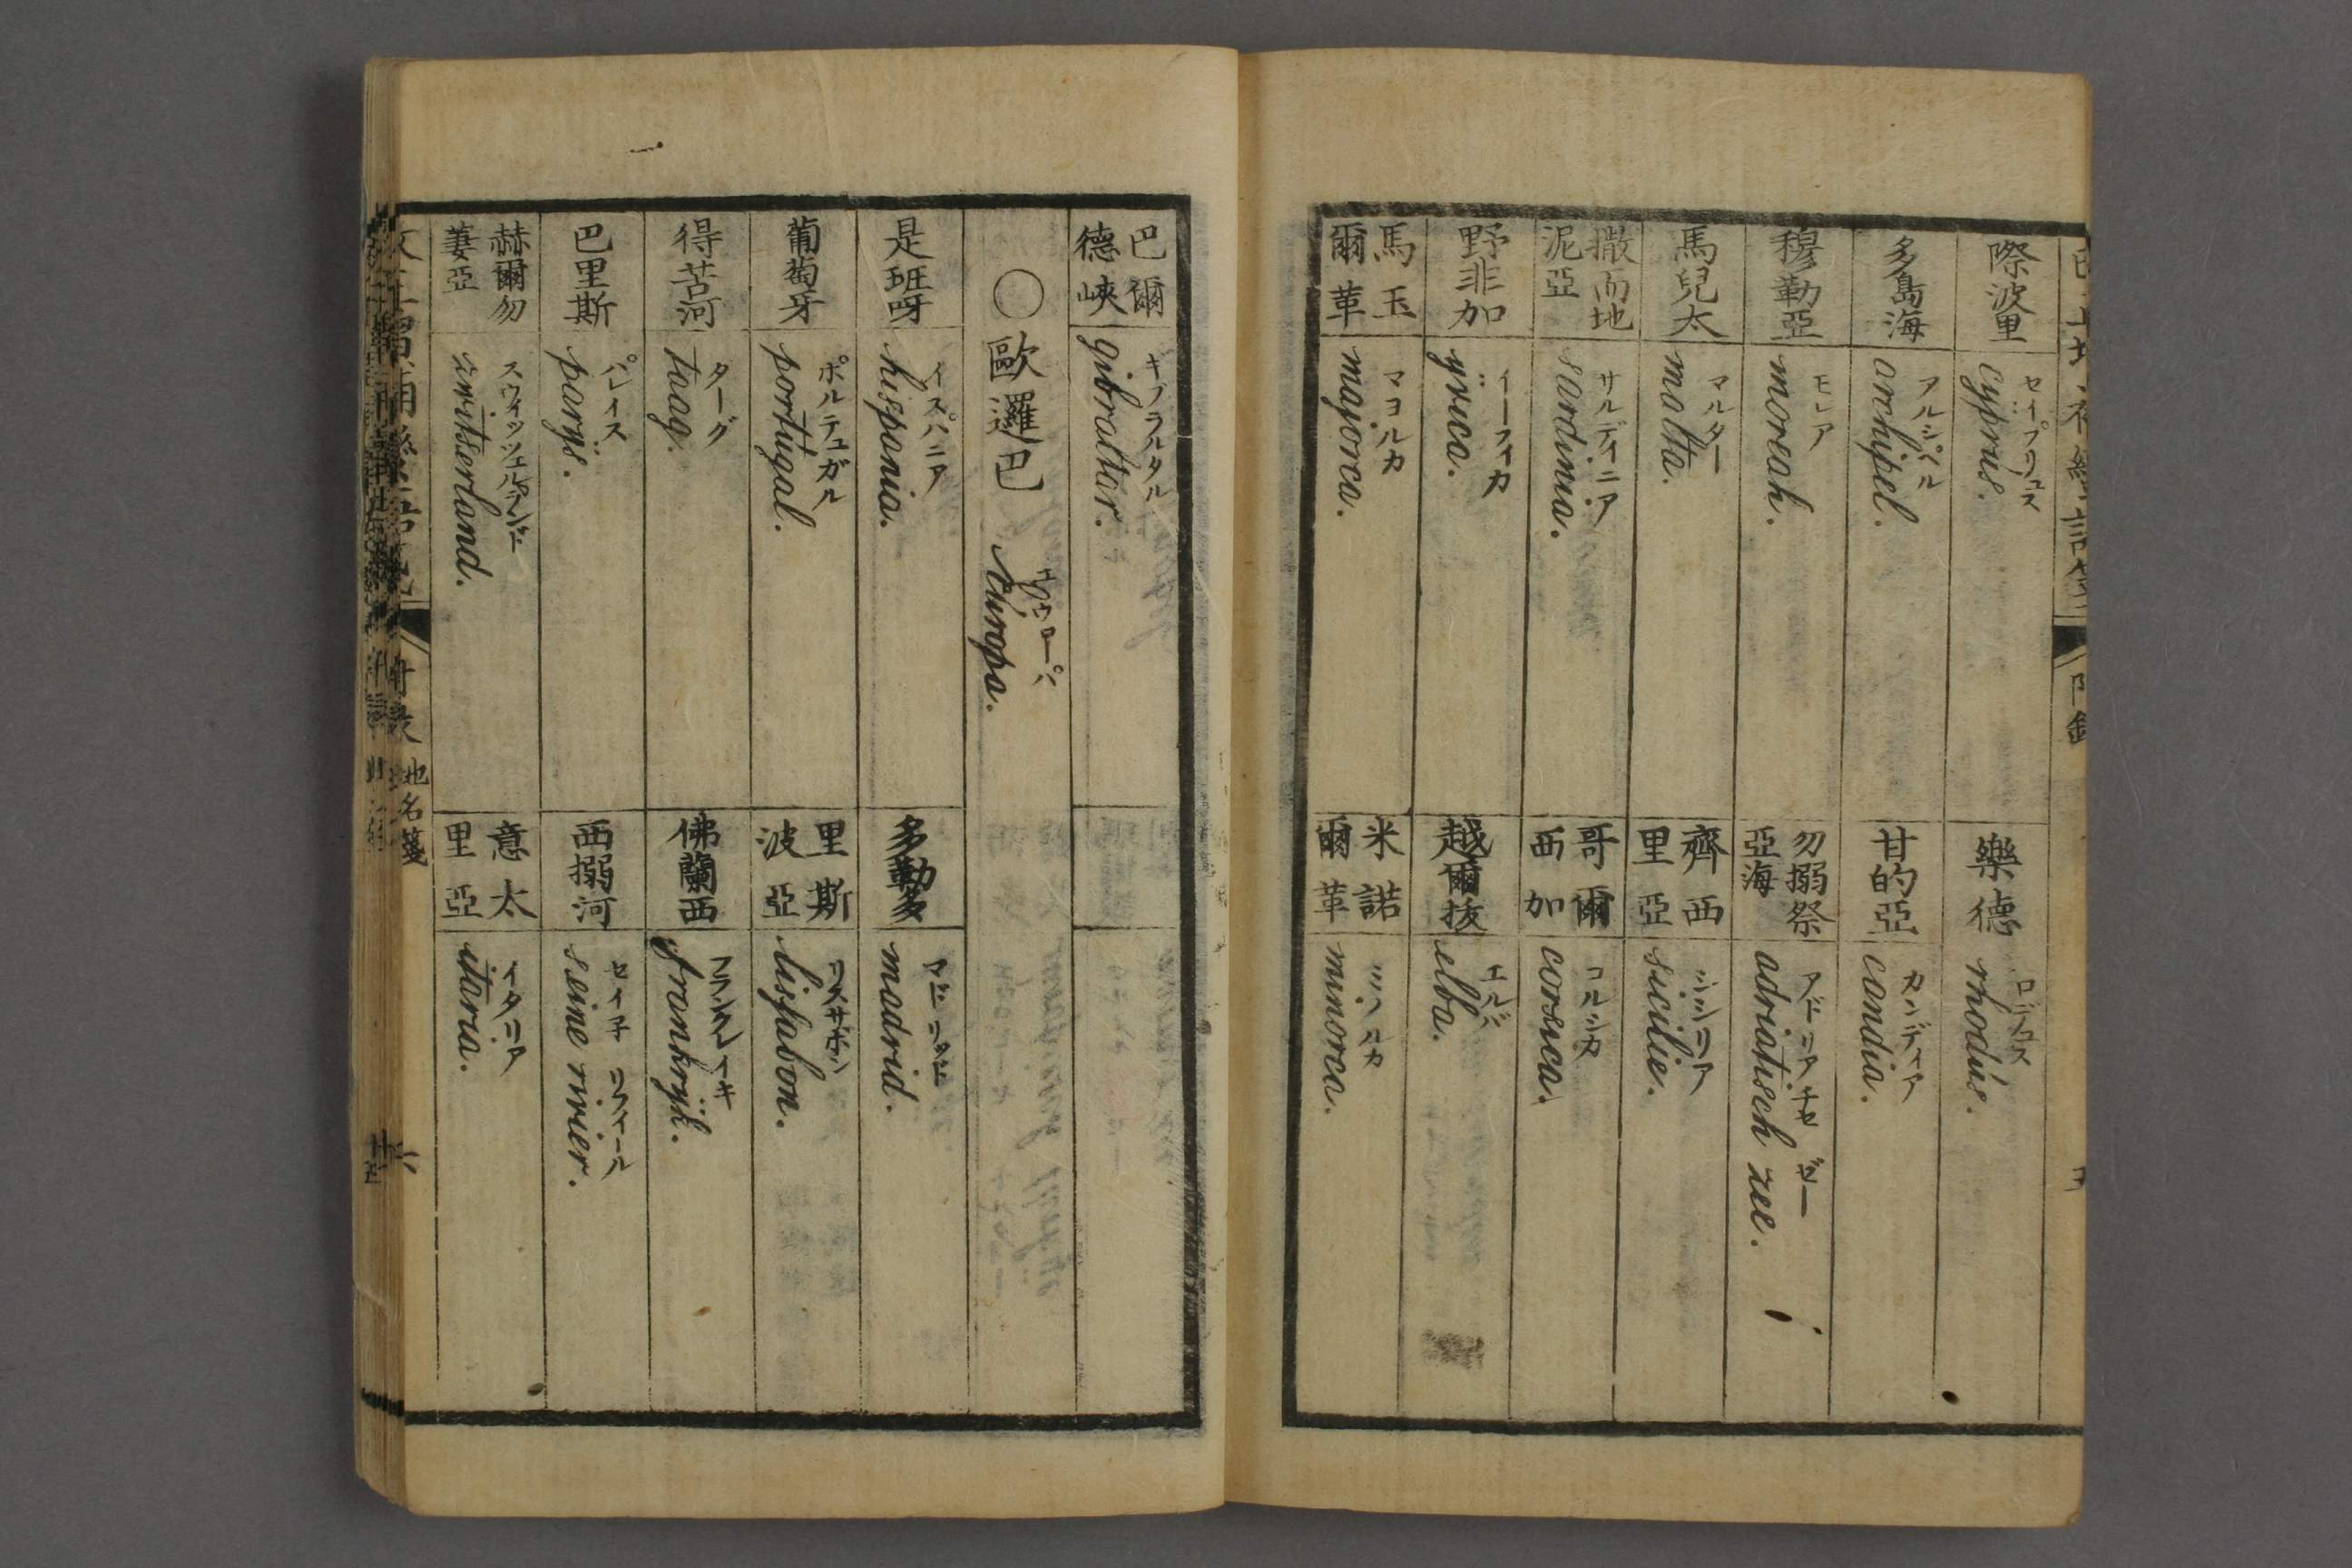 際波里
セイプリュス
cyprus.
樂德
ロデュス
rhodús.
多島海
アルシペル
archipel.
甘的亞
カンディア
candia.
穆勒亞
モレア
moreah.
勿搦祭
亞海
アドリアチセ ゼー
adriatisch zee.
馬兒太
マルター
malta.
齊西
里亞
シシリア
sicilie.
撒而地
泥亞
サルディニア
sardinia.
哥爾
西加
コルシカ
corsica.
野非加
イーフィカ
ÿvica.
越爾拔
エルバ
elba.
馬玉
爾革
マヨルカ
majorca.
米諾
爾革
ミノルカ
minorca.
巴爾
德峽
ギブラルタル
gibraltar.
〇歐邏巴
エウローパ
Európa.
是班呀
イスパニア
hispania.
多勒多
マドリッド
madrid.
葡萄牙
ポルテュガル
portugal.
里斯
波亞
リスサボン
lissabon.
得苦河
ターグ
taag.
佛蘭西
フランクレイキ
frankrÿk.
巴里斯
パレイス
parÿs.
西搦河
セイ子 リフィール
seine rivier.
赫爾勿
萋亞
スウィッツェルランド
switserland.
意太
里亞
イタリア
itaria.
地名箋
六